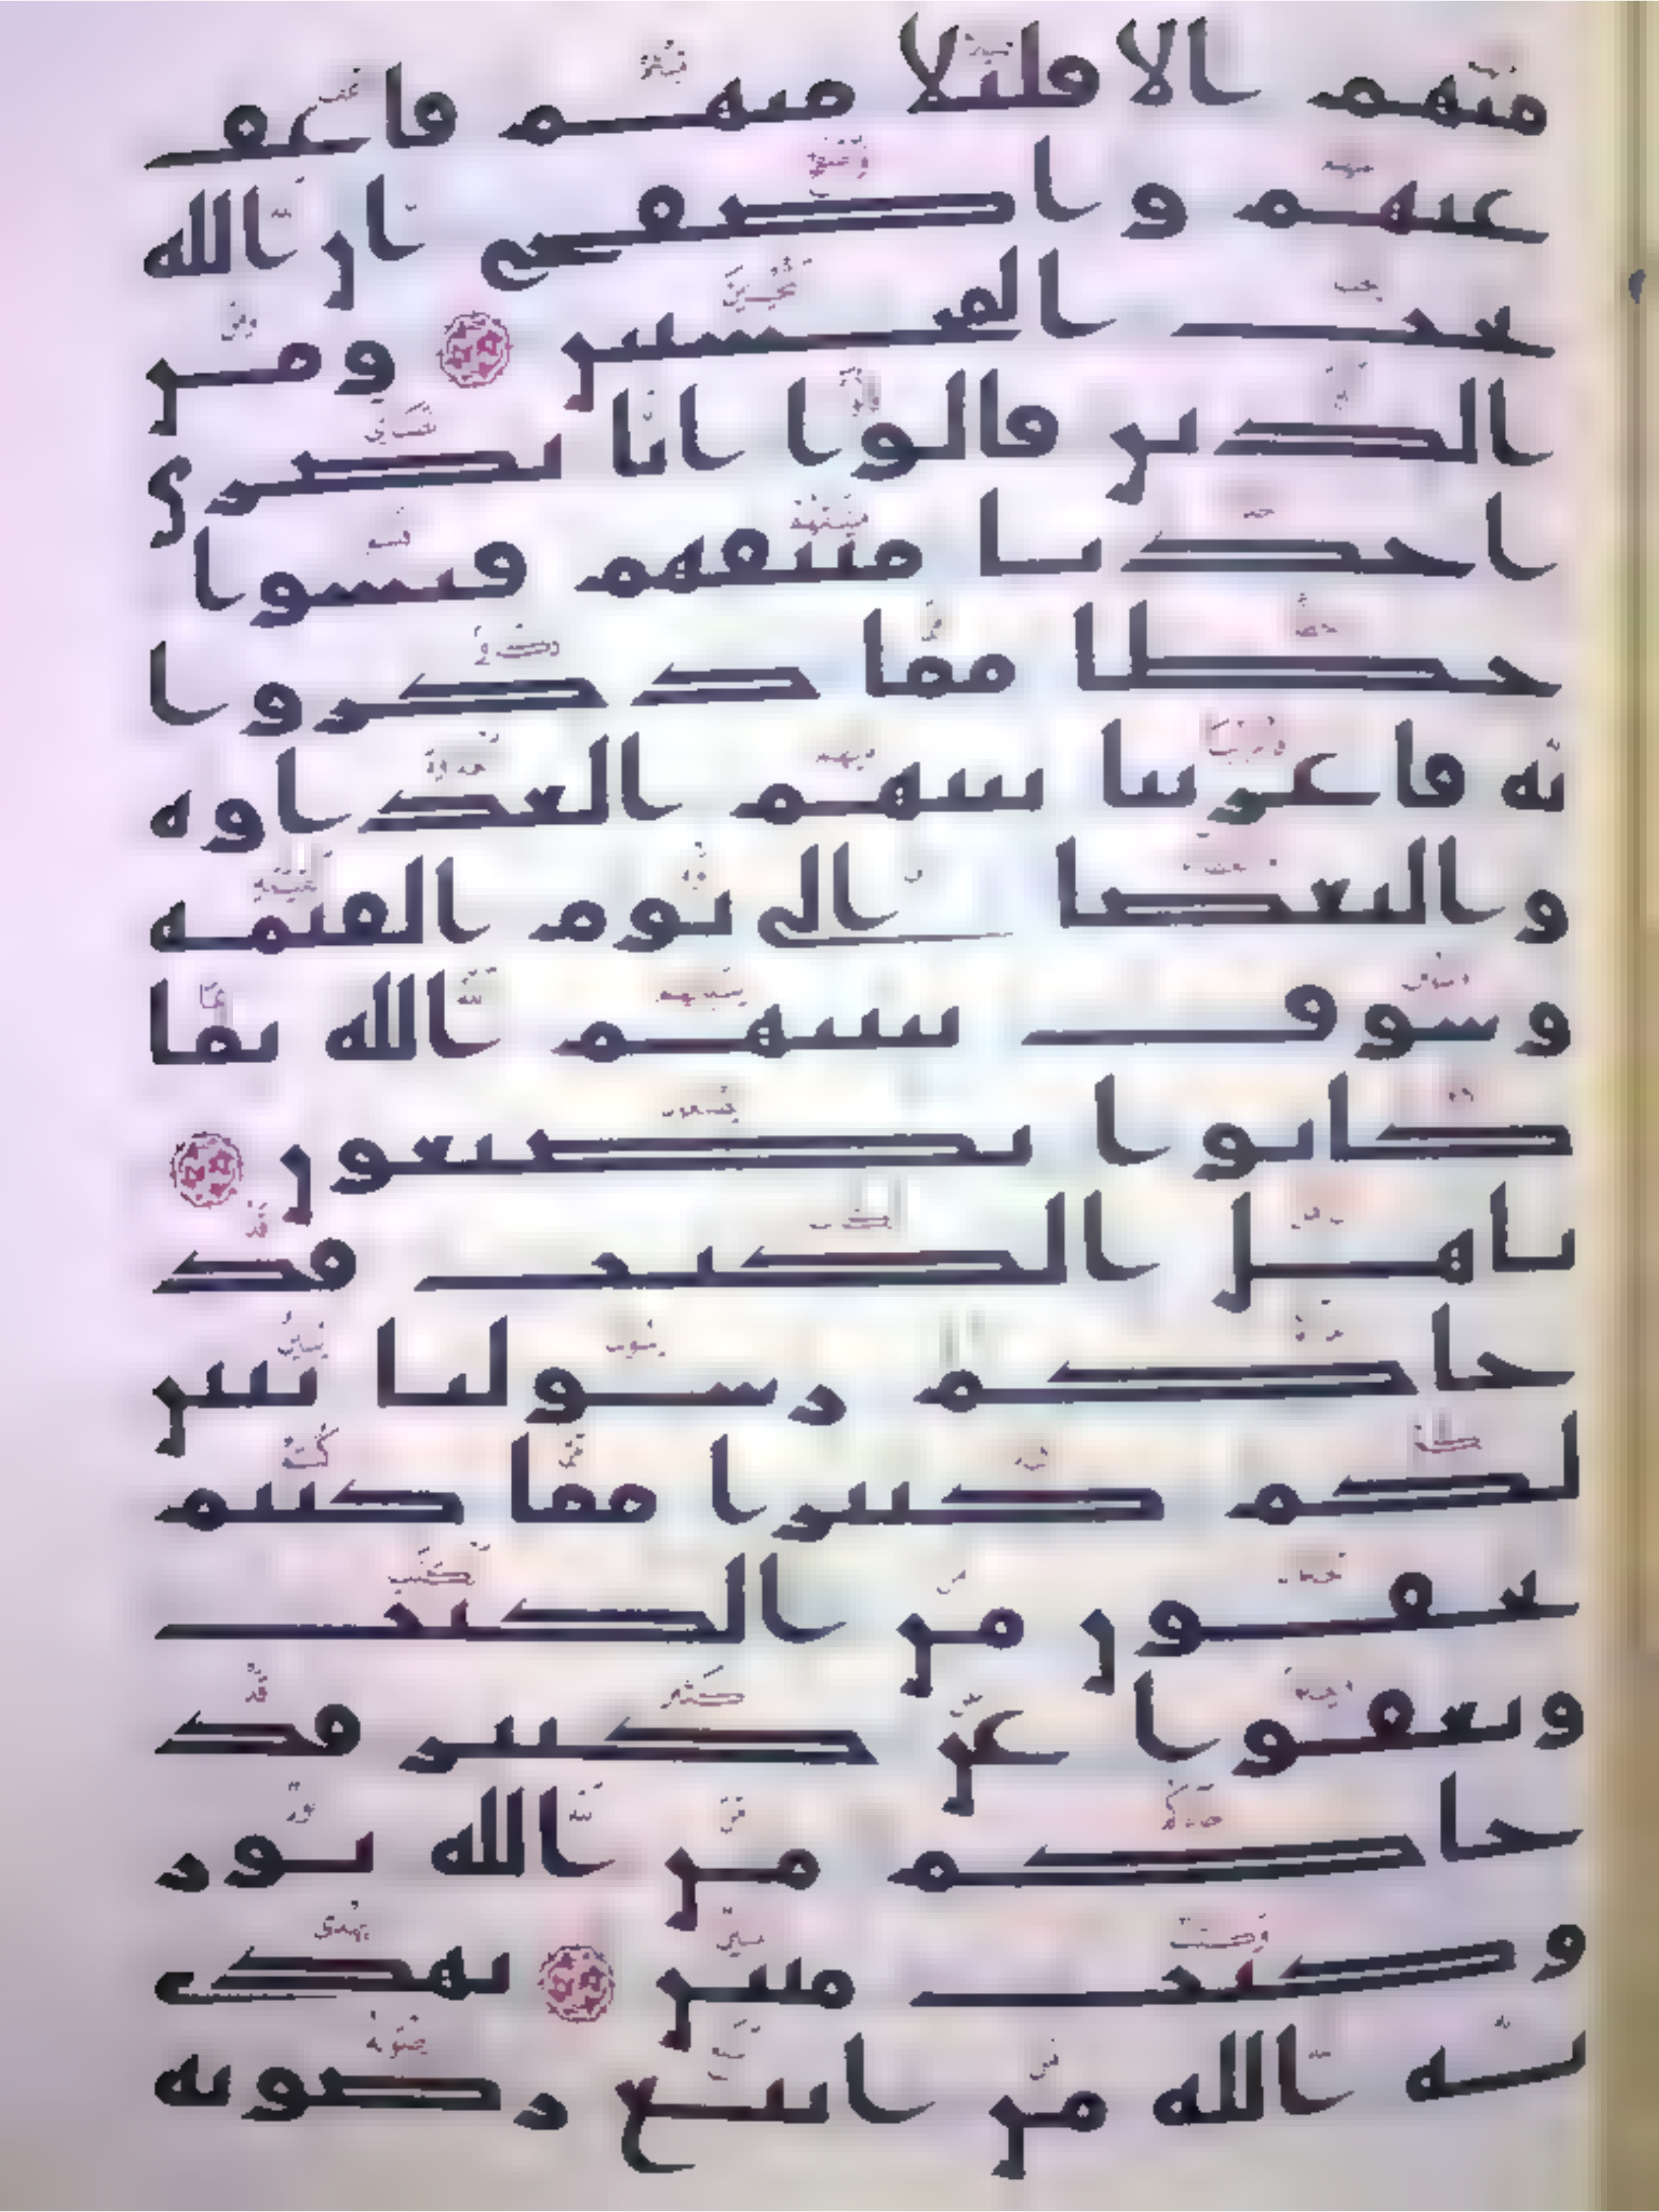 منهم الا قليلا منهم فاعف
عنهم واصفح ان الله
يحب المحسنين ومن
الذين قالوا انا نصرى
اخذنا ميثقهم فنسوا
حظا مما ذكروا
به فاغرينا بينهم العداوه
والبغضا الى يوم القيمه
وسوف ينبيهم الله بما
كانوا يصنعون
ياهل الكتب قد
جاكم رسولنا يبين
لكم كثيرا مما كنتم
تخفون من الكتب
ويعفوا عن كثير قد
جاكم من الله نور
وكتب مبين يهدى
به الله من اتبع رضونه